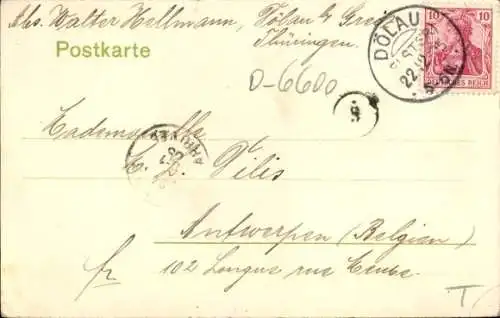 Abs. Walter Hellmann, Dölau b. Greiz
Thüringen.
Postkarte
D-6600
DÖLAU
ELSTER
22
10 10
DEUTSCHES REICH
9
Mademoiselle
Pilis
Antwerpen (Belgien)
102 Longue rue
T